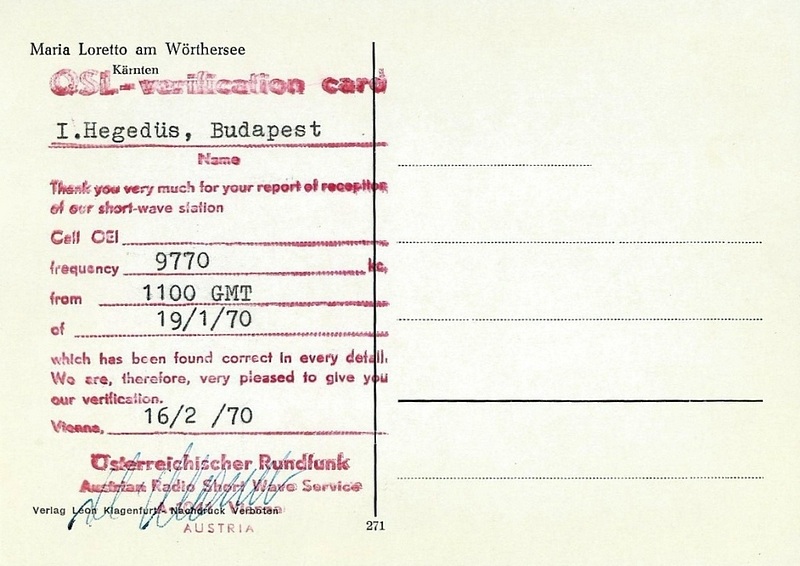 Maria Loretto am Wörthersee
Kärnten
QSL-verification card
I.Hegedüs, Budapest
Name
Thank you very much for your report of reception
of our short-wave station
Call OEI
frequency 9770 kc,
from 1100 GMT
of 19/1/70
which has been found correct in every detail.
We are, therefore, very pleased to give you
our verification.
Vienna, 16/2 /70
Österreichischer Rundfunk
Austrian Radio Short Wave Service
Vienna
Verlag Léon Klagenfurt - Nachdruck Verboten
AUSTRIA
271